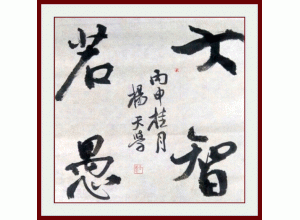 大智
若愚
丙申桂月
楊天學